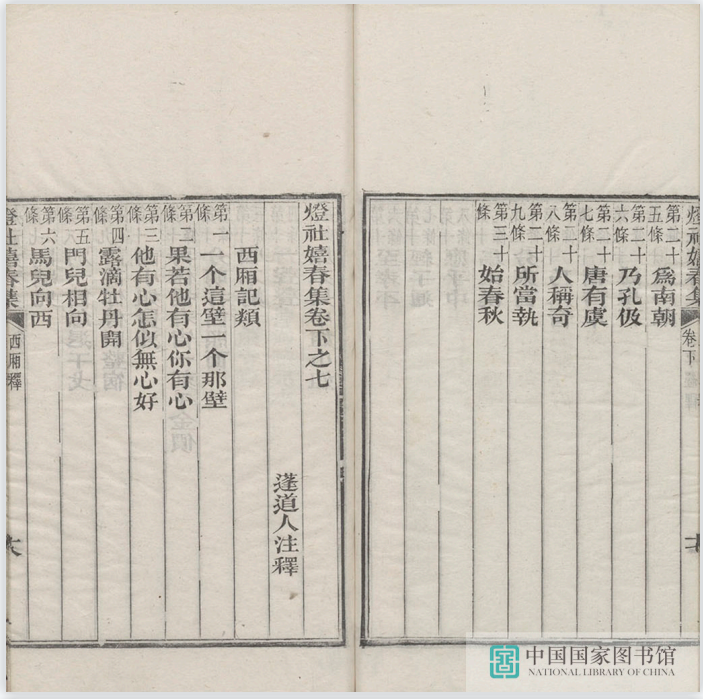 燈社嬉春集
卷下
第二十五條 爲南朝
第二十六條 乃孔伋
第二十七條 唐有虞
第二十八條 人稱奇
第二十九條 所當執
第三十條 始春秋
燈社嬉春集卷下之七
蓬道人注釋
西厢記類
第一條 一个這壁一个那壁
第二條 果若他有心你有心
第三條 他有心怎似無心好
第四條 露滴牡丹開
第五條 門兒相向
第六條 馬兒向西
燈社嬉春集
西厢釋
中国国家图书馆
NATIONAL LIBRARY OF CHINA